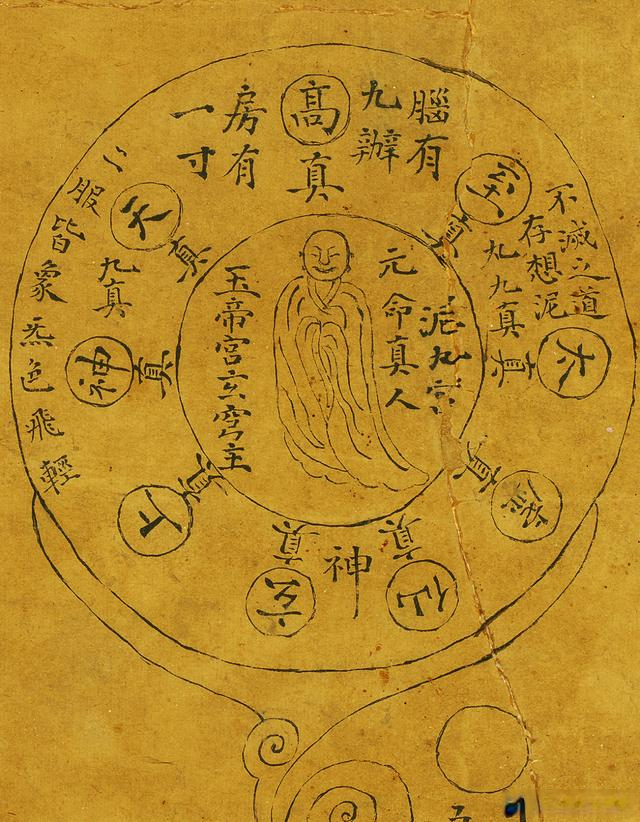 腦有
九辦
高真
房有
一寸
至真
不滅之道
存想泥
丸九真
太真
真
仙真
神
玄真
上真
神真
天真
九真
服皆象炁色飛輕
泥丸宮
元命真人
玉帝宮玄穹主